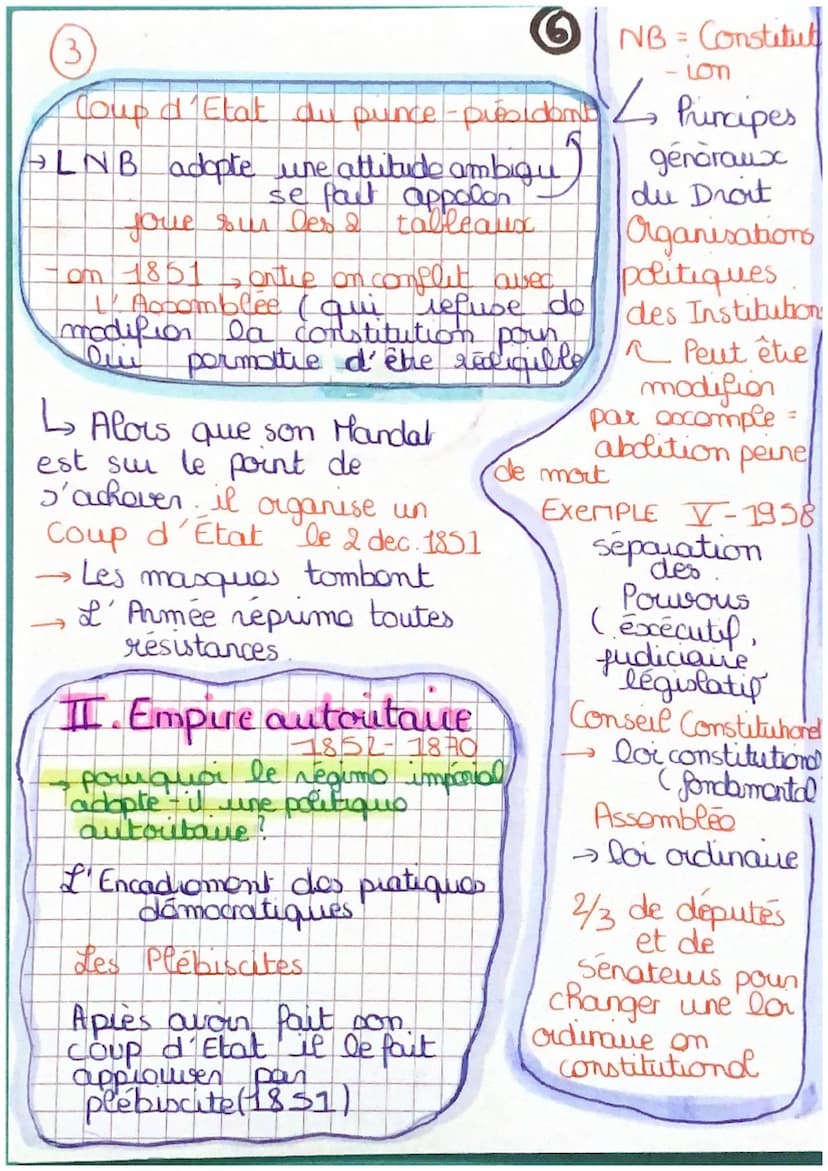 3
Coup d'Etat du prince-président
→ LNB adopte une attitude ambigu
se fait appeler
joue sur les 2 tableaux
- en 1851 → entre en conflit avec
l'Assemblée (qui refuse de
modifier la constitution pour
lui permettre d'être rééligible
↳ Alors que son Mandat
est sur le point de
s'achever. il organise un
Coup d'État le 2 dec. 1851
→ Les masques tombent
→ L'Armée réprime toutes
résistances.
II. Empire autoritaire
1852-1870
→ pourquoi le régime impérial
adopte-il une politique
autoritaire?
L'Encadrement des pratiques
démocratiques
Les Plébiscites
Après avoir fait son
coup d'Etat il le fait
approuver par
plébiscite (1851)
6
NB = Constitut
-ion
↳ Principes
généraux
du Droit
Organisations
politiques
des Institutions
Peut être
modifier
par exemple =
abolition peine
de mort
EXEMPLE V-1958
séparation
des
Pouvoirs
(éxécutif,
judiciaire
législatif
Conseil Constitutionel
→ loi constitutionel
(fondamental
Assemblée
→ loi ordinaire
2/3 de députés
et de
Sénateurs pour
changer une loi
ordinaire en
constitutionel